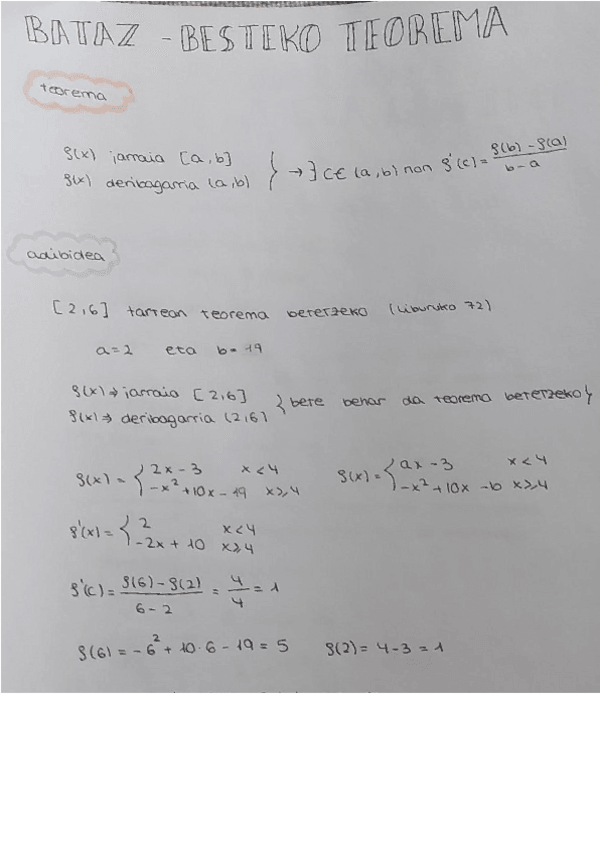 BATAZ - BESTEKO TEOREMA
teorema
f(x) jarraia [a,b]
f(x) deribagarria (a,b) } → ∃ c ∈ (a,b) non f'(c) = (f(b) - f(a)) / (b - a)
adibidea
[2,6] tartean teorema betetzeko (liburuko 72)
a=2 eta b=19
f(x) ⇒ jarraia [2,6]
f(x) ⇒ deribagarria (2,6) } bete behar da teorema betetzeko }
f(x) = { 2x - 3 x < 4 f(x) = { ax - 3 x < 4
-x² + 10x - 19 x ≥ 4 -x² + 10x - b x ≥ 4
f'(x) = { 2 x < 4
-2x + 10 x ≥ 4
f'(c) = (f(6) - f(2)) / (6 - 2) = 4/4 = 1
f(6) = -6² + 10·6 - 19 = 5 f(2) = 4 - 3 = 1